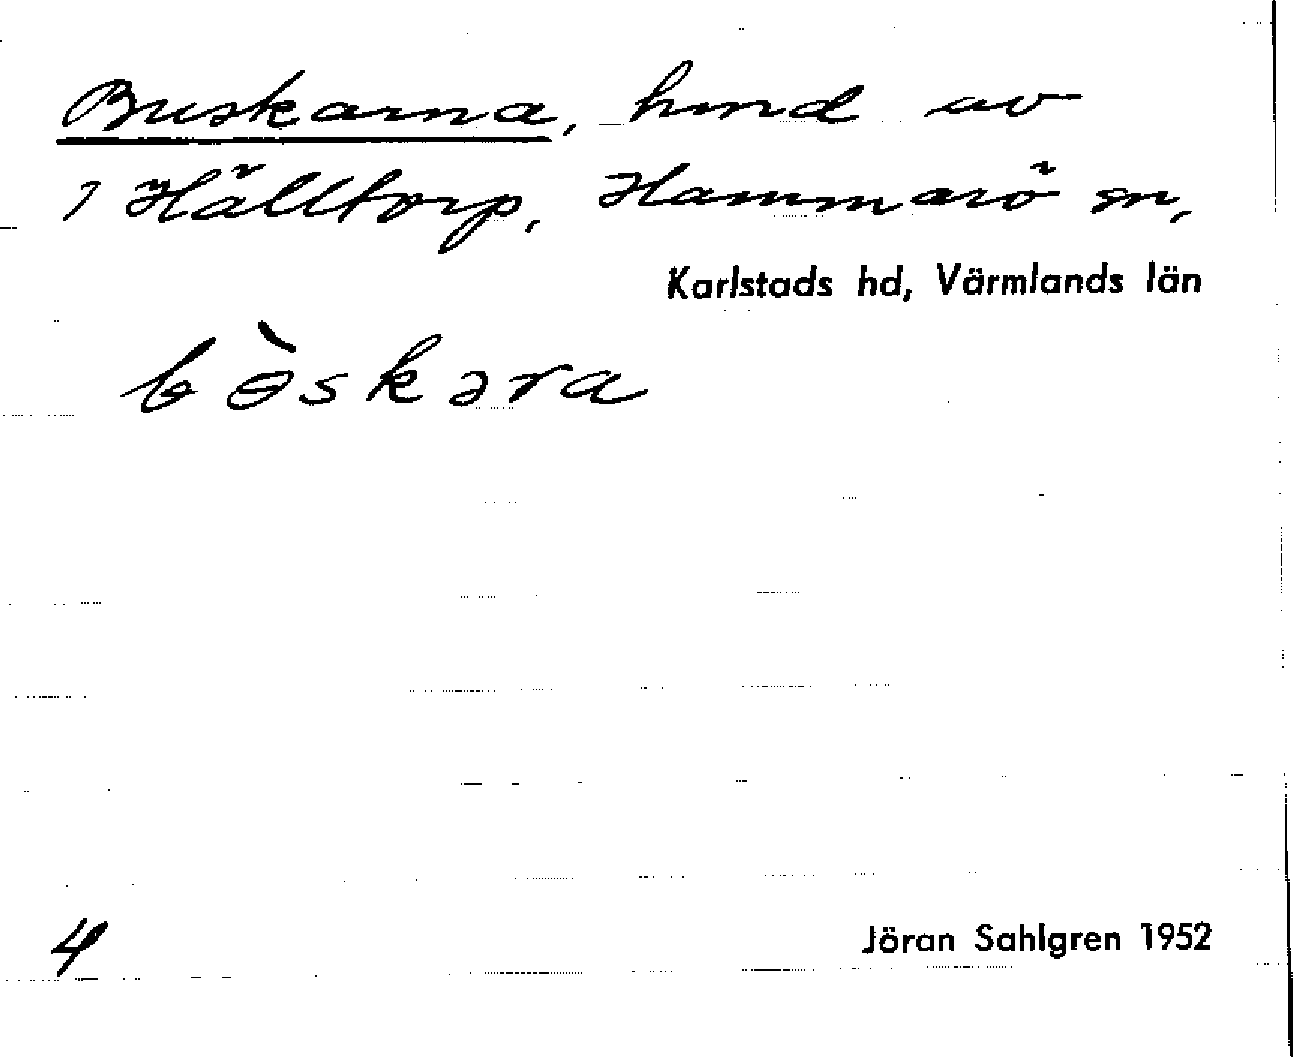 Buskarna, hmd av
1 Hälltorp, Hammarö sn,
Karlstads hd, Värmlands län
bɵ̀skəra
4
Jöran Sahlgren 1952